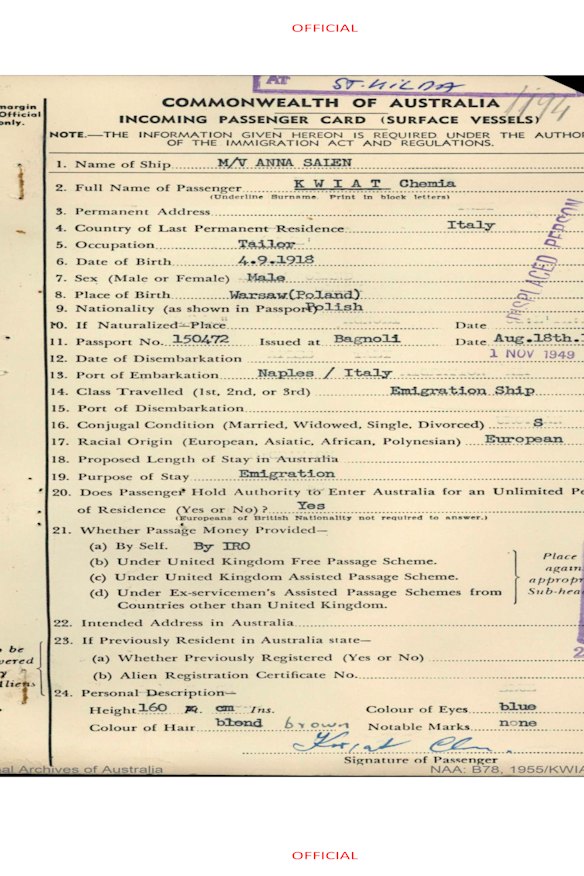 OFFICIAL
AT ST. KILDA
COMMONWEALTH OF AUSTRALIA
1194
margin
Official
only.
INCOMING PASSENGER CARD (SURFACE VESSELS)
NOTE.—THE INFORMATION GIVEN HEREON IS REQUIRED UNDER THE AUTHO
OF THE IMMIGRATION ACT AND REGULATIONS.
1. Name of Ship M/V ANNA SALEN
2. Full Name of Passenger KWIAT Chemia
(Underline Surname. Print in block letters)
3. Permanent Address
4. Country of Last Permanent Residence Italy
5. Occupation Tailor
6. Date of Birth 4.9.1918
7. Sex (Male or Female) Male
DISPLACED PERSON
8. Place of Birth Warsaw(Poland)
9. Nationality (as shown in Passport) Polish
10. If Naturalized—Place Date
11. Passport No. 150472 Issued at Bagnoli Date Aug.18th.1
12. Date of Disembarkation 1 NOV 1949
13. Port of Embarkation Naples / Italy
14. Class Travelled (1st, 2nd, or 3rd) Emigration Ship
15. Port of Disembarkation
16. Conjugal Condition (Married, Widowed, Single, Divorced) S
17. Racial Origin (European, Asiatic, African, Polynesian) European
18. Proposed Length of Stay in Australia
19. Purpose of Stay Emigration
20. Does Passenger Hold Authority to Enter Australia for an Unlimited Pe
of Residence (Yes or No)? Yes
(Europeans of British Nationality not required to answer.)
21. Whether Passage Money Provided—
(a) By Self. By IRO
(b) Under United Kingdom Free Passage Scheme.
(c) Under United Kingdom Assisted Passage Scheme.
(d) Under Ex-servicemen's Assisted Passage Schemes from
Countries other than United Kingdom.
Place
again
appropr
Sub-hea
22. Intended Address in Australia
23. If Previously Resident in Australia state—
(a) Whether Previously Registered (Yes or No)
(b) Alien Registration Certificate No.
be
vered
y
Aliens
2
24. Personal Description—
Height 160 cm Ins. Colour of Eyes blue
Colour of Hair blond brown Notable Marks none
Kwiat
Signature of Passenger
al Archives of Australia
NAA: B78, 1955/KWIA
OFFICIAL